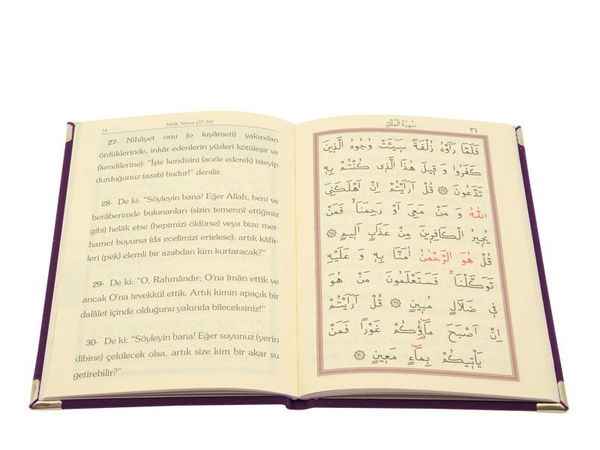 34
Mülk Sûresi (27-30)
27- Nihâyet onu (o kıyâmeti) yakından
ördüklerinde, inkâr edenlerin yüzleri kötüleşir ve
(kendilerine): "İşte kendisini (acele ederek) isteyip
durduğunuz (azab) budur!" denilir.
28- De ki: "Söyleyin bana! Eğer Allah, beni ve
berâberimde bulunanları (sizin temennî ettiğiniz
gibi) helâk etse (hepimizi öldürse) veya bize mer-
hamet buyursa (da ecelimizi ertelese), artık kâfir-
leri (pek) elemli bir azabdan kim kurtaracak?"
29- De ki: "O, Rahmândır; O'na îman ettik ve
ancak O'na tevekkül ettik. Artık kimin apaçık bir
dalâlet içinde olduğunu yakında bileceksiniz!"
30- De ki: "Söyleyin bana! Eğer suyunuz (yerin
dibine) çekilecek olsa, artık size kim bir akar su
getirebilir?"
سورة الملك
٣٤
فَلَمَّا رَاَوْهُ زُلْفَةً سِيـَٔتْ وُجُوهُ الَّذِينَ
كَفَرُوا وَ قِيلَ هٰذَا الَّذِى كُنْتُمْ بِهِ
تَدَّعُونَ ۞ قُلْ اَرَاَيْتُمْ اِنْ اَهْلَكَنِىَ
اللّٰهُ وَ مَنْ مَعِىَ اَوْ رَحِمَنَا ۙ فَمَنْ
يُجِيرُ الْكَافِرِينَ مِنْ عَذَابٍ اَلِيمٍ ۞
قُلْ هُوَ الرَّحْمٰنُ اٰمَنَّا بِهِ وَ عَلَيْهِ
تَوَكَّلْنَا ۚ فَسَتَعْلَمُونَ مَنْ هُوَ
فِى ضَلَالٍ مُبِينٍ ۞ قُلْ اَرَاَيْتُمْ
اِنْ اَصْبَحَ مَٓاؤُ۬كُمْ غَوْرًا فَمَنْ
يَاْتِيكُمْ بِمَٓاءٍ مَعِينٍ ۞